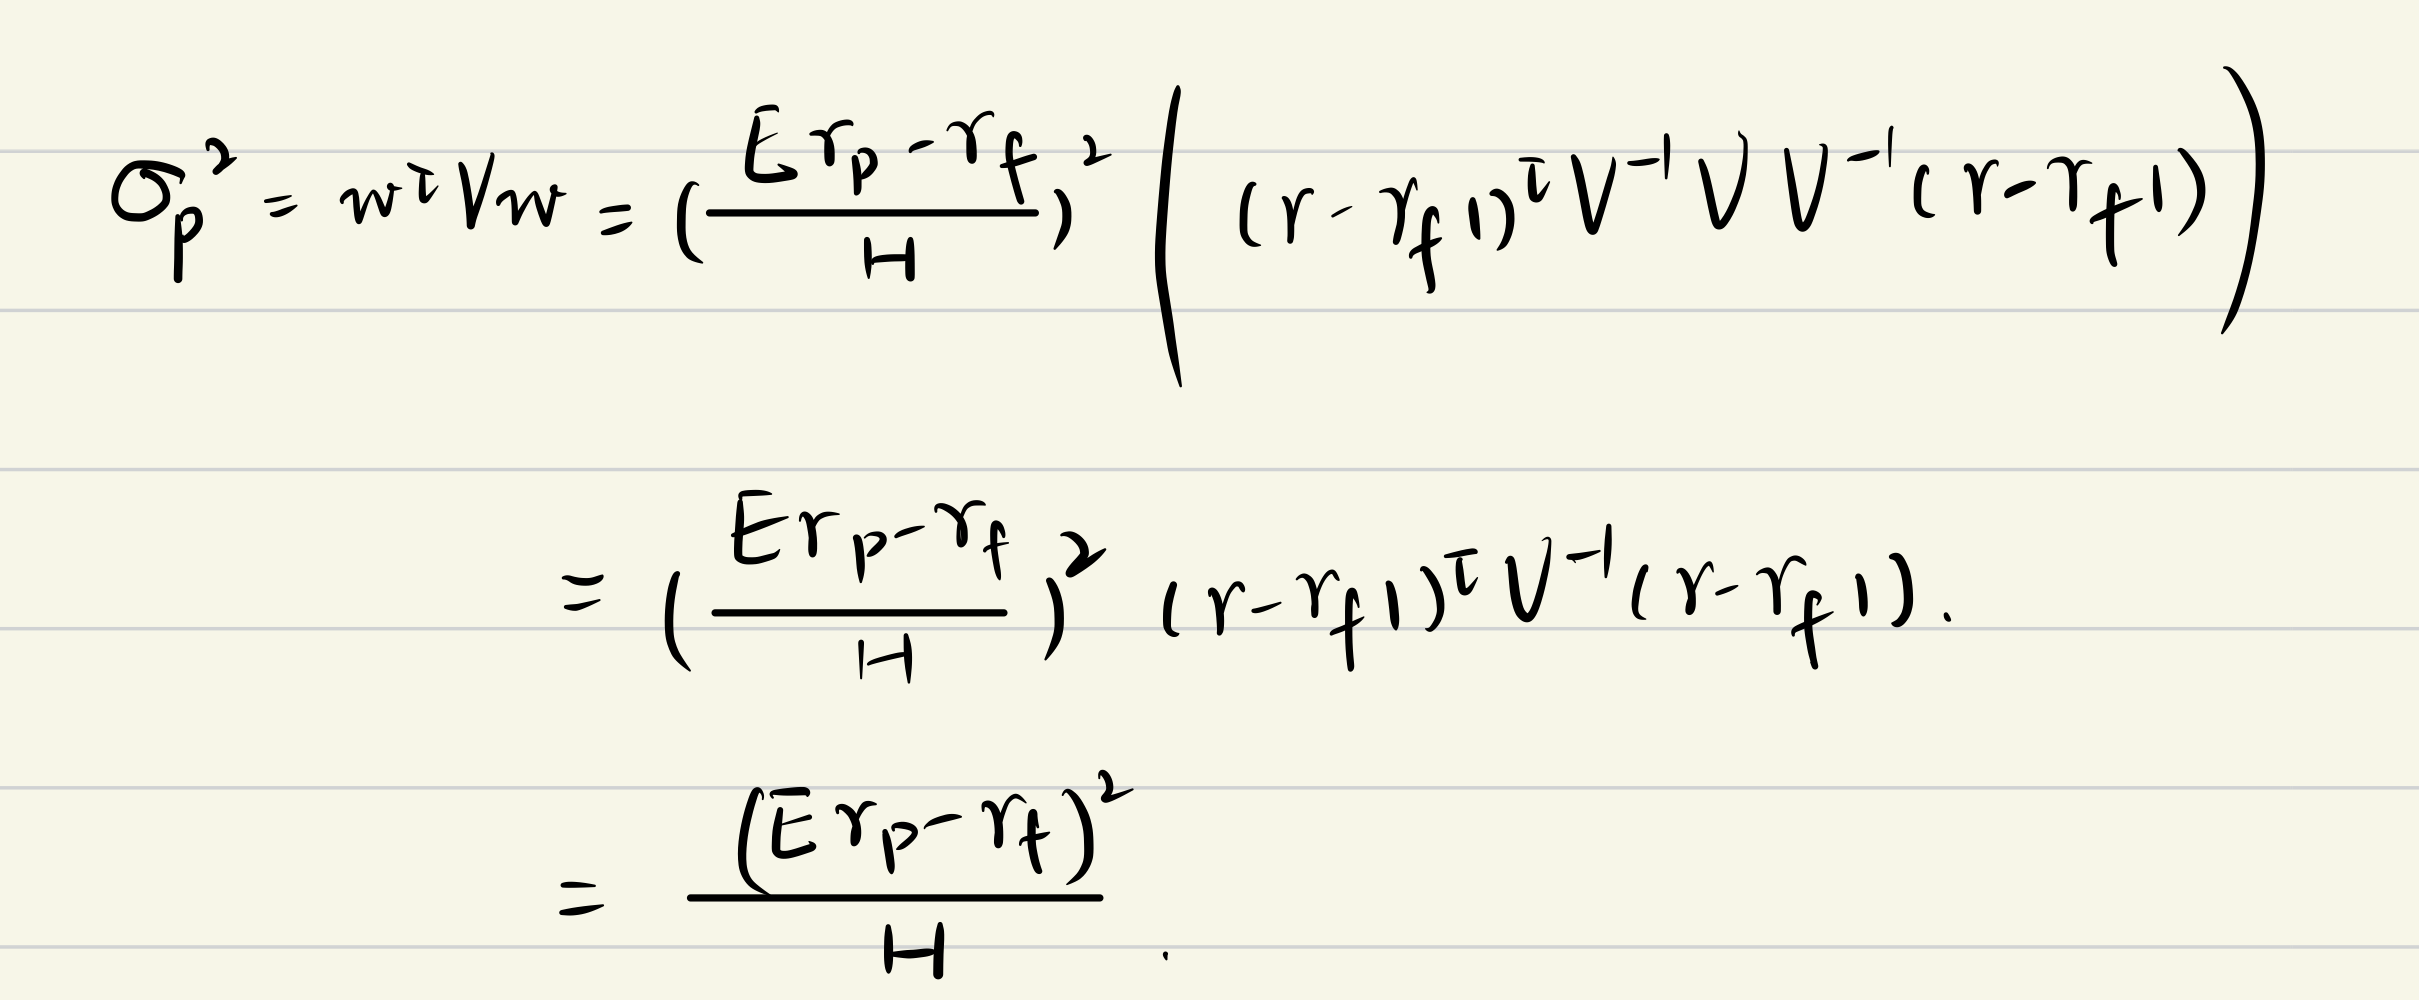 σₚ² = wᵀVw = ((Erₚ - r_f)/H)² ((r - r_f 1)ᵀ V⁻¹ V V⁻¹ (r - r_f 1))
= ((Erₚ - r_f)/H)² (r - r_f 1)ᵀ V⁻¹ (r - r_f 1).
= (Erₚ - r_f)²/H .